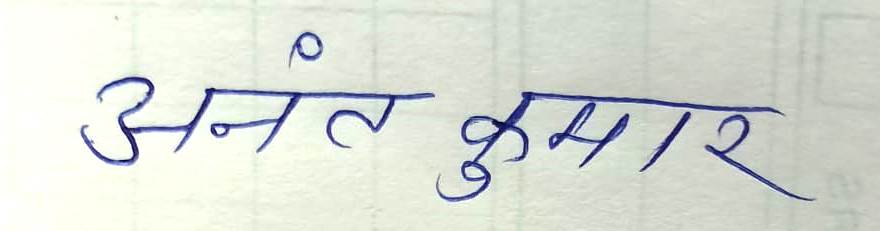 अनंत कुमार